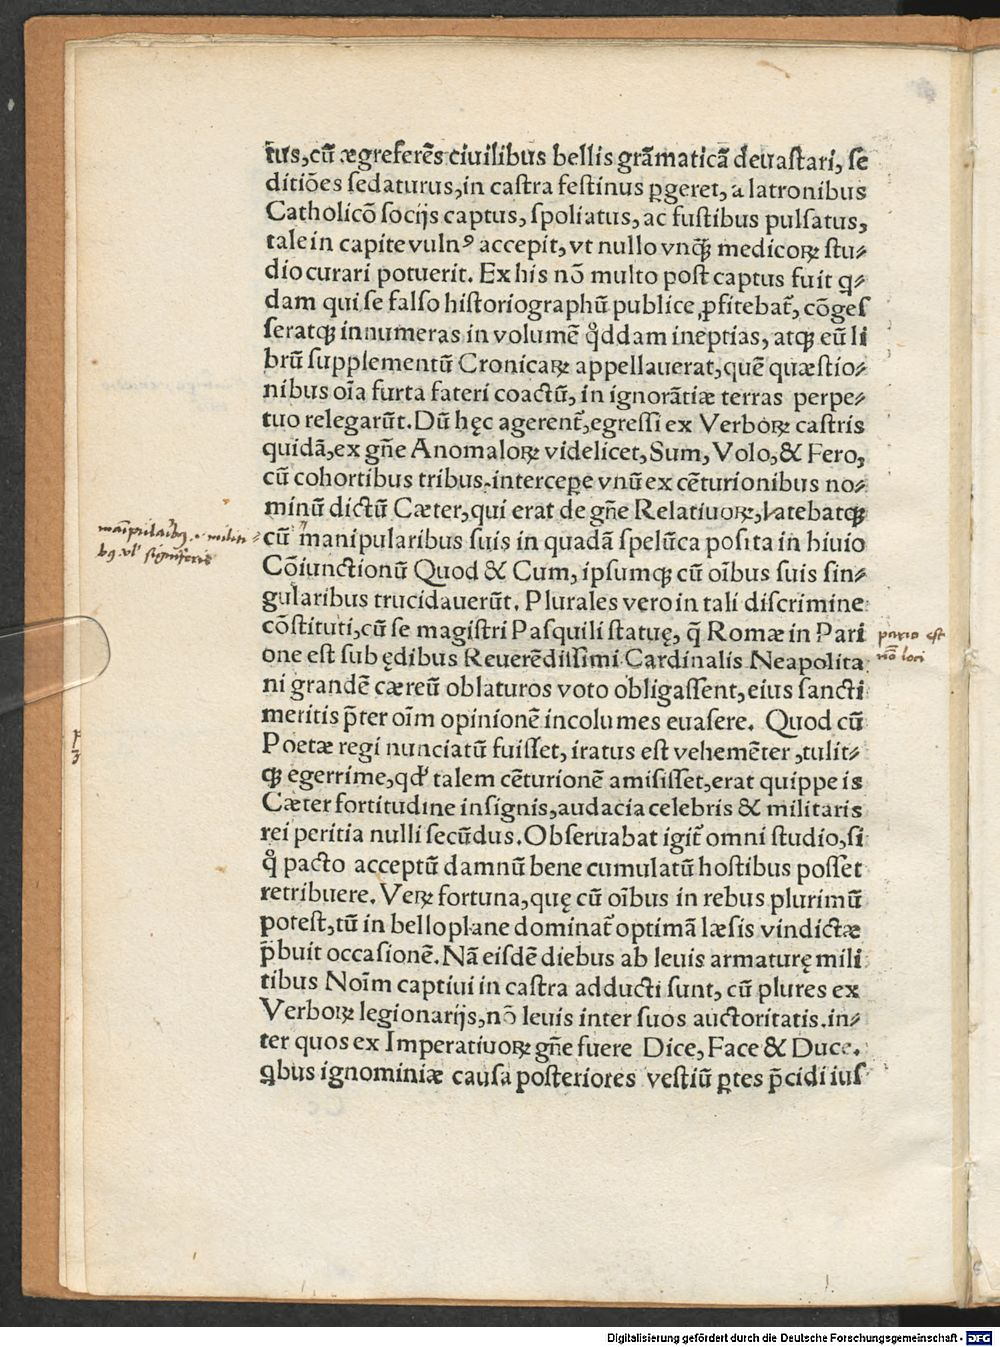 tus,cū ægreferēs ciuilibus bellis grāmaticā deuastari, se
ditiōes sedaturus,in castra festinus ꝑgeret, a latronibus
Catholicō socijs captus, spoliatus, ac fustibus pulsatus,
tale in capite vulnꝰ accepit, vt nullo vnqꝫ medicoꝝ stu⸗
dio curari potuerit. Ex his nō multo post captus fuit q⸗
dam qui se falso historiographū publice ꝓfitebat̄, cōges
seratqꝫ innumeras in volumē qͦddam ineptias, atqꝫ eū li
brū supplementū Cronicaꝝ appellauerat,quē quæstio⸗
nibus oīa furta fateri coactū, in ignorātiæ terras perpe⸗
tuo relegarūt. Dū hęc agerent̄,egressi ex Verboꝝ castris
quidā,ex gn̄e Anomaloꝝ videlicet, Sum, Volo, & Fero,
cū cohortibus tribus.intercepe vnū ex cēturionibus no⸗
minū dictū Cæter,qui erat de gn̄e Relatiuoꝝ,latebatqꝫ
cū manipularibus suis in quadā spelūca posita in biuio
Cōiunctionū Quod & Cum, ipsumqꝫ cū oībus suis sin⸗
gularibus trucidauerūt. Plurales vero in tali discrimine
cōstituti,cū se magistri Pasquili statuę, q̄ Romæ in Pari
one est sub ędibus Reuerēdissimi Cardinalis Neapolita
ni grandē cæreū oblaturos voto obligassent,eius sancti
meritis p̄ter oīm opinionē incolumes euasere. Quod cū
Poetæ regi nunciatū fuisset, iratus est vehemēter ,tulit⸗
qꝫ egerrime,qd' talem cēturionē amisisset,erat quippe is
Cæter fortitudine insignis,audacia celebris & militaris
rei peritia nulli secūdus. Obseruabat igit̄ omni studio,si
qͦ pacto acceptū damnū bene cumulatū hostibus posset
retribuere. Veꝝ fortuna,quę cū oībus in rebus plurimū
potest,tū in bello plane dominat̄ optimā læsis vindictæ
p̄buit occasionē. Nā eisdē diebus ab leuis armaturę mili
tibus Noīm captiui in castra adducti sunt, cū plures ex
Verboꝝ legionarijs,nō leuis inter suos auctoritatis.in⸗
ter quos ex Imperatiuoꝝ gn̄e fuere Dice, Face & Duce.
qbus ignominiæ causa posteriores vestiū ꝑtes p̄cidi ius
pario est
nō loci
Digitalisierung gefördert durch die Deutsche Forschungsgemeinschaft - DFG